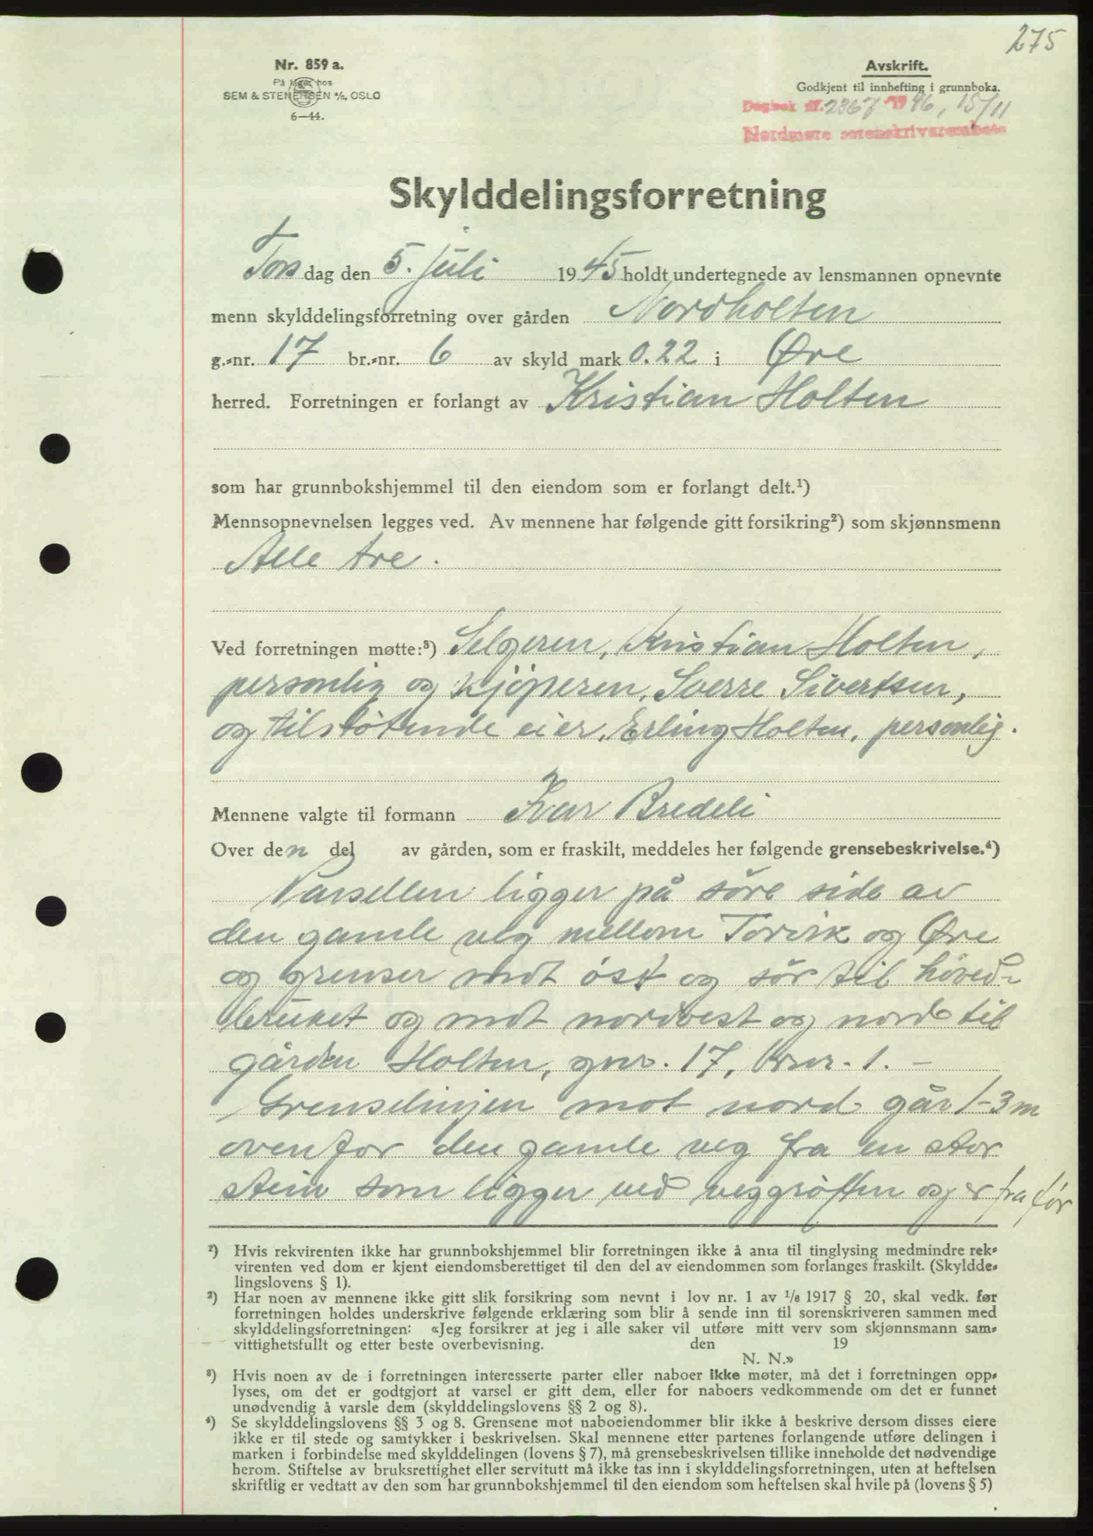 275
Nr. 859 a.
På lager hos
SEM & STENERSEN A/S, OSLO
6—44.
Avskrift.
Godkjent til innhefting i grunnboka.
Dagbok nr. 2367 1946, 15/11
Nordmøre sorenskriverembete
Skylddelingsforretning
Tors dag den 5. juli 1945 holdt undertegnede av lensmannen opnevnte
menn skylddelingsforretning over gården Nordholten
g.-nr. 17 br.-nr. 6 av skyld mark 0.22 i Øre
herred. Forretningen er forlangt av Kristian Holten
som har grunnbokshjemmel til den eiendom som er forlangt delt.¹)
Mennsopnevnelsen legges ved. Av mennene har følgende gitt forsikring²) som skjønnsmenn
Alle tre.
Ved forretningen møtte:³) Selgeren, Kristian Holten,
personlig og kjøperen, Sverre Sivertsen,
og tilstøtende eier, Erling Holten, personlig.
Mennene valgte til formann Ivar Bredeli
Over den del av gården, som er fraskilt, meddeles her følgende grensebeskrivelse.⁴)
Parsellen ligger på søre side av
den gamle veg mellom Torvik og Øre
og grenser mot øst og sør til hoved-
bruket og mot nordvest og nord til
gården Holten, gnr. 17, bnr. 1. –
Grenselinjen mot nord går 1-3 m
ovenfor den gamle veg fra en stor
stein som ligger ved veggrøften og er fra før
¹) Hvis rekvirenten ikke har grunnbokshjemmel blir forretningen ikke å anta til tinglysing medmindre rek-
virenten ved dom er kjent eiendomsberettiget til den del av eiendommen som forlanges fraskilt. (Skyldde-
lingslovens § 1).
²) Har noen av mennene ikke gitt slik forsikring som nevnt i lov nr. 1 av 1/6 1917 § 20, skal vedk. før
forretningen holdes underskrive følgende erklæring som blir å sende inn til sorenskriveren sammen med
skylddelingsforretningen: «Jeg forsikrer at jeg i alle saker vil utføre mitt verv som skjønnsmann sam-
vittighetsfullt og etter beste overbevisning. den 19
N. N.»
³) Hvis noen av de i forretningen interesserte parter eller naboer ikke møter, må det i forretningen opp-
lyses, om det er godtgjort at varsel er gitt dem, eller for naboers vedkommende om det er funnet
unødvendig å varsle dem (skylddelingslovens §§ 2 og 8).
⁴) Se skylddelingslovens §§ 3 og 8. Grensene mot naboeiendommer blir ikke å beskrive dersom disses eiere
ikke er til stede og samtykker i beskrivelsen. Skal mennene etter partenes forlangende utføre delingen i
marken i forbindelse med skylddelingen (lovens § 7), må grensebeskrivelsen tillike inneholde det nødvendige
herom. Stiftelse av bruksrettighet eller servitutt må ikke tas inn i skylddelingsforretningen, uten at heftelsen
skriftlig er vedtatt av den som har grunnbokshjemmel til den eiendom som heftelsen skal hvile på (lovens § 5)